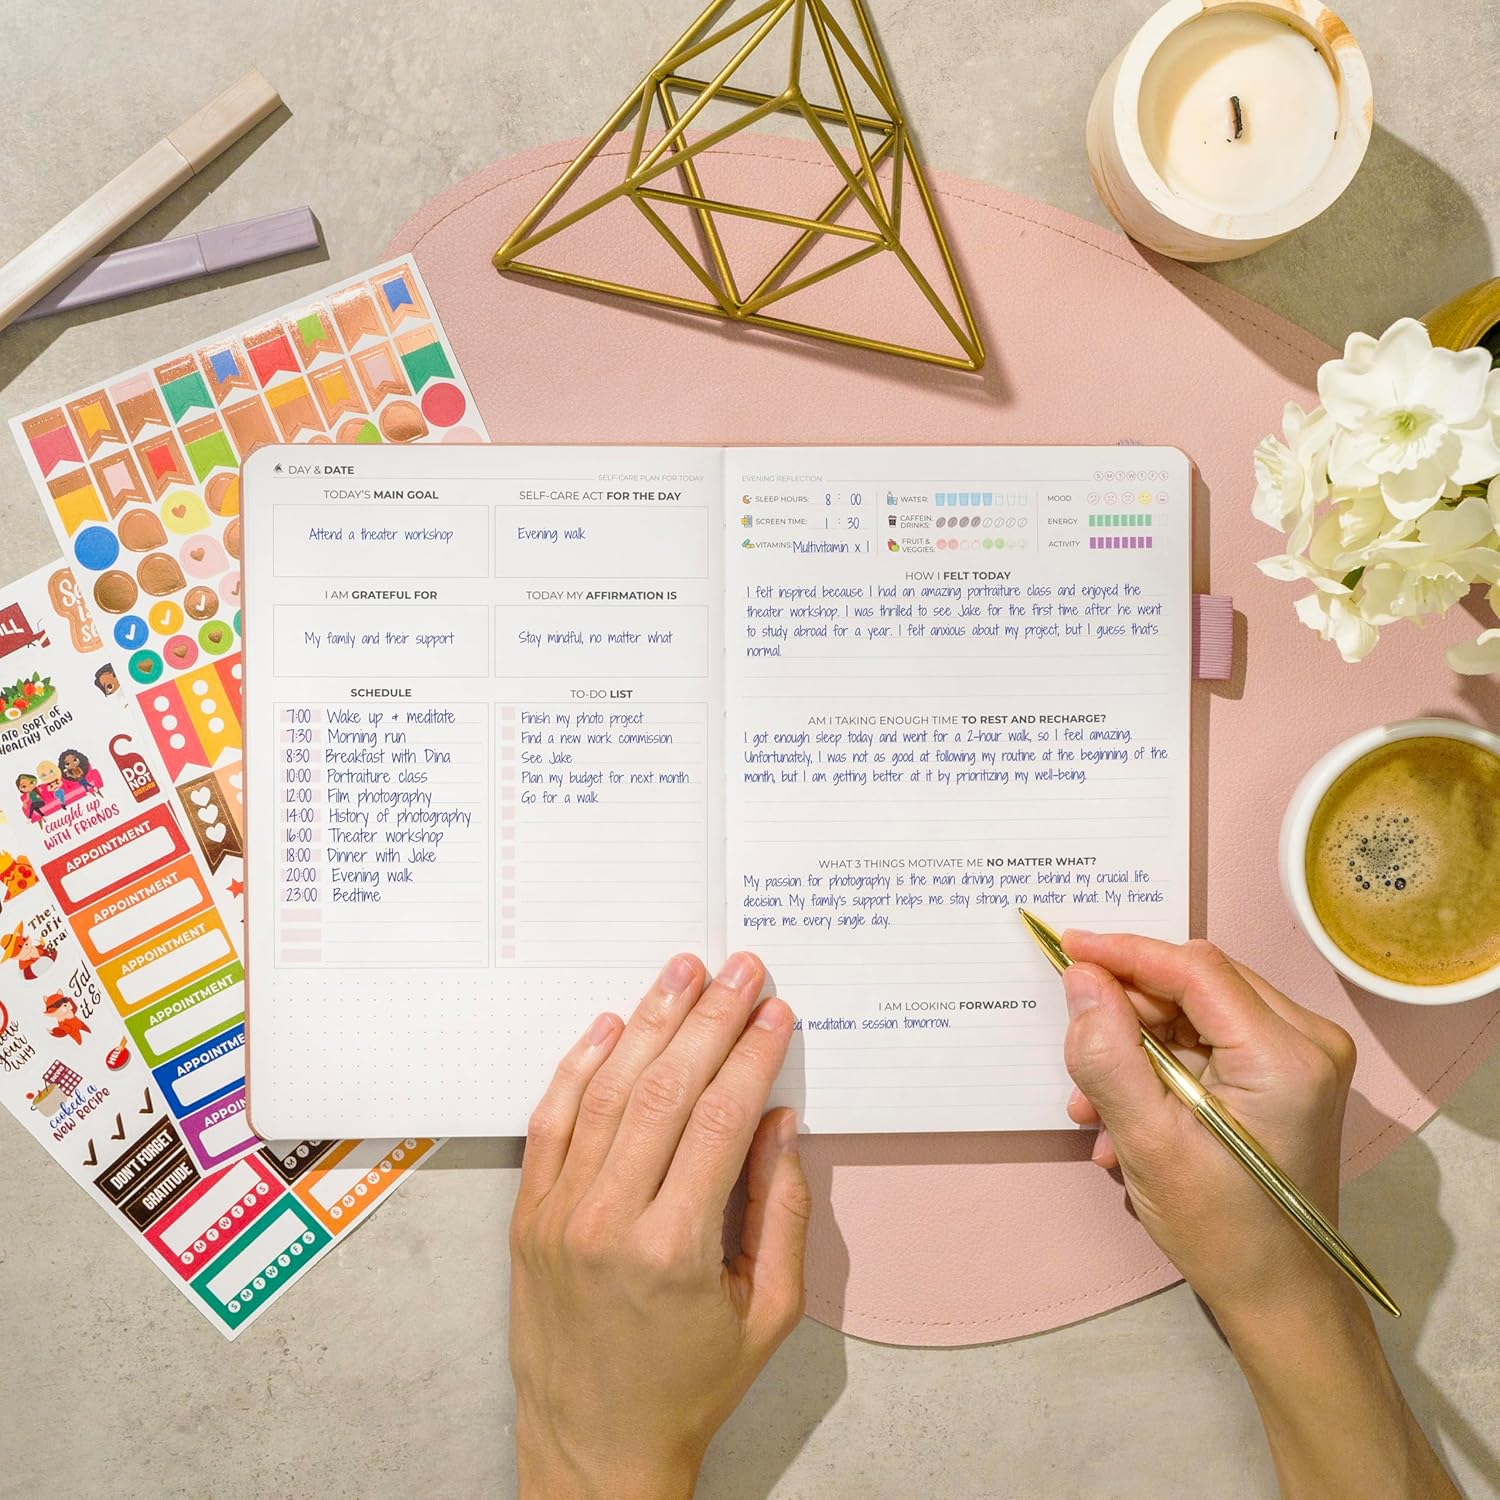 DAY & DATE
SELF-CARE PLAN FOR TODAY
TODAY'S MAIN GOAL
Attend a theater workshop
SELF-CARE ACT FOR THE DAY
Evening walk
I AM GRATEFUL FOR
My family and their support
TODAY MY AFFIRMATION IS
Stay mindful, no matter what
SCHEDULE
7:00 Wake up + meditate
7:30 Morning run
8:30 Breakfast with Dina
10:00 Portraiture class
12:00 Film photography
14:00 History of photography
16:00 Theater workshop
18:00 Dinner with Jake
20:00 Evening walk
23:00 Bedtime
TO-DO LIST
Finish my photo project
Find a new work commission
See Jake
Plan my budget for next month
Go for a walk
EVENING REFLECTION
S M T W T F S
SLEEP HOURS: 8 : 00
SCREEN TIME: 1 : 30
VITAMINS: Multivitamin x 1
WATER:
CAFFEIN. DRINKS:
FRUIT & VEGGIES:
MOOD
ENERGY
ACTIVITY
HOW I FELT TODAY
I felt inspired because I had an amazing portraiture class and enjoyed the
theater workshop. I was thrilled to see Jake for the first time after he went
to study abroad for a year. I felt anxious about my project, but I guess that's
normal.
AM I TAKING ENOUGH TIME TO REST AND RECHARGE?
I got enough sleep today and went for a 2-hour walk, so I feel amazing.
Unfortunately, I was not as good at following my routine at the beginning of the
month, but I am getting better at it by prioritizing my well-being.
WHAT 3 THINGS MOTIVATE ME NO MATTER WHAT?
My passion for photography is the main driving power behind my crucial life
decision. My family's support helps me stay strong, no matter what. My friends
inspire me every single day.
I AM LOOKING FORWARD TO
meditation session tomorrow.
ATE SORT OF
HEALTHY TODAY
DO
NOT
DISTURB
caught up
WITH FRIENDS
APPOINTMENT
APPOINTMENT
APPOINTMENT
APPOINTMENT
APPOINTME
APPOIN
cooked a
NEW RECIPE
DON'T FORGET
GRATITUDE
S M T W T F S
S M T W T F S
S M T W T F S